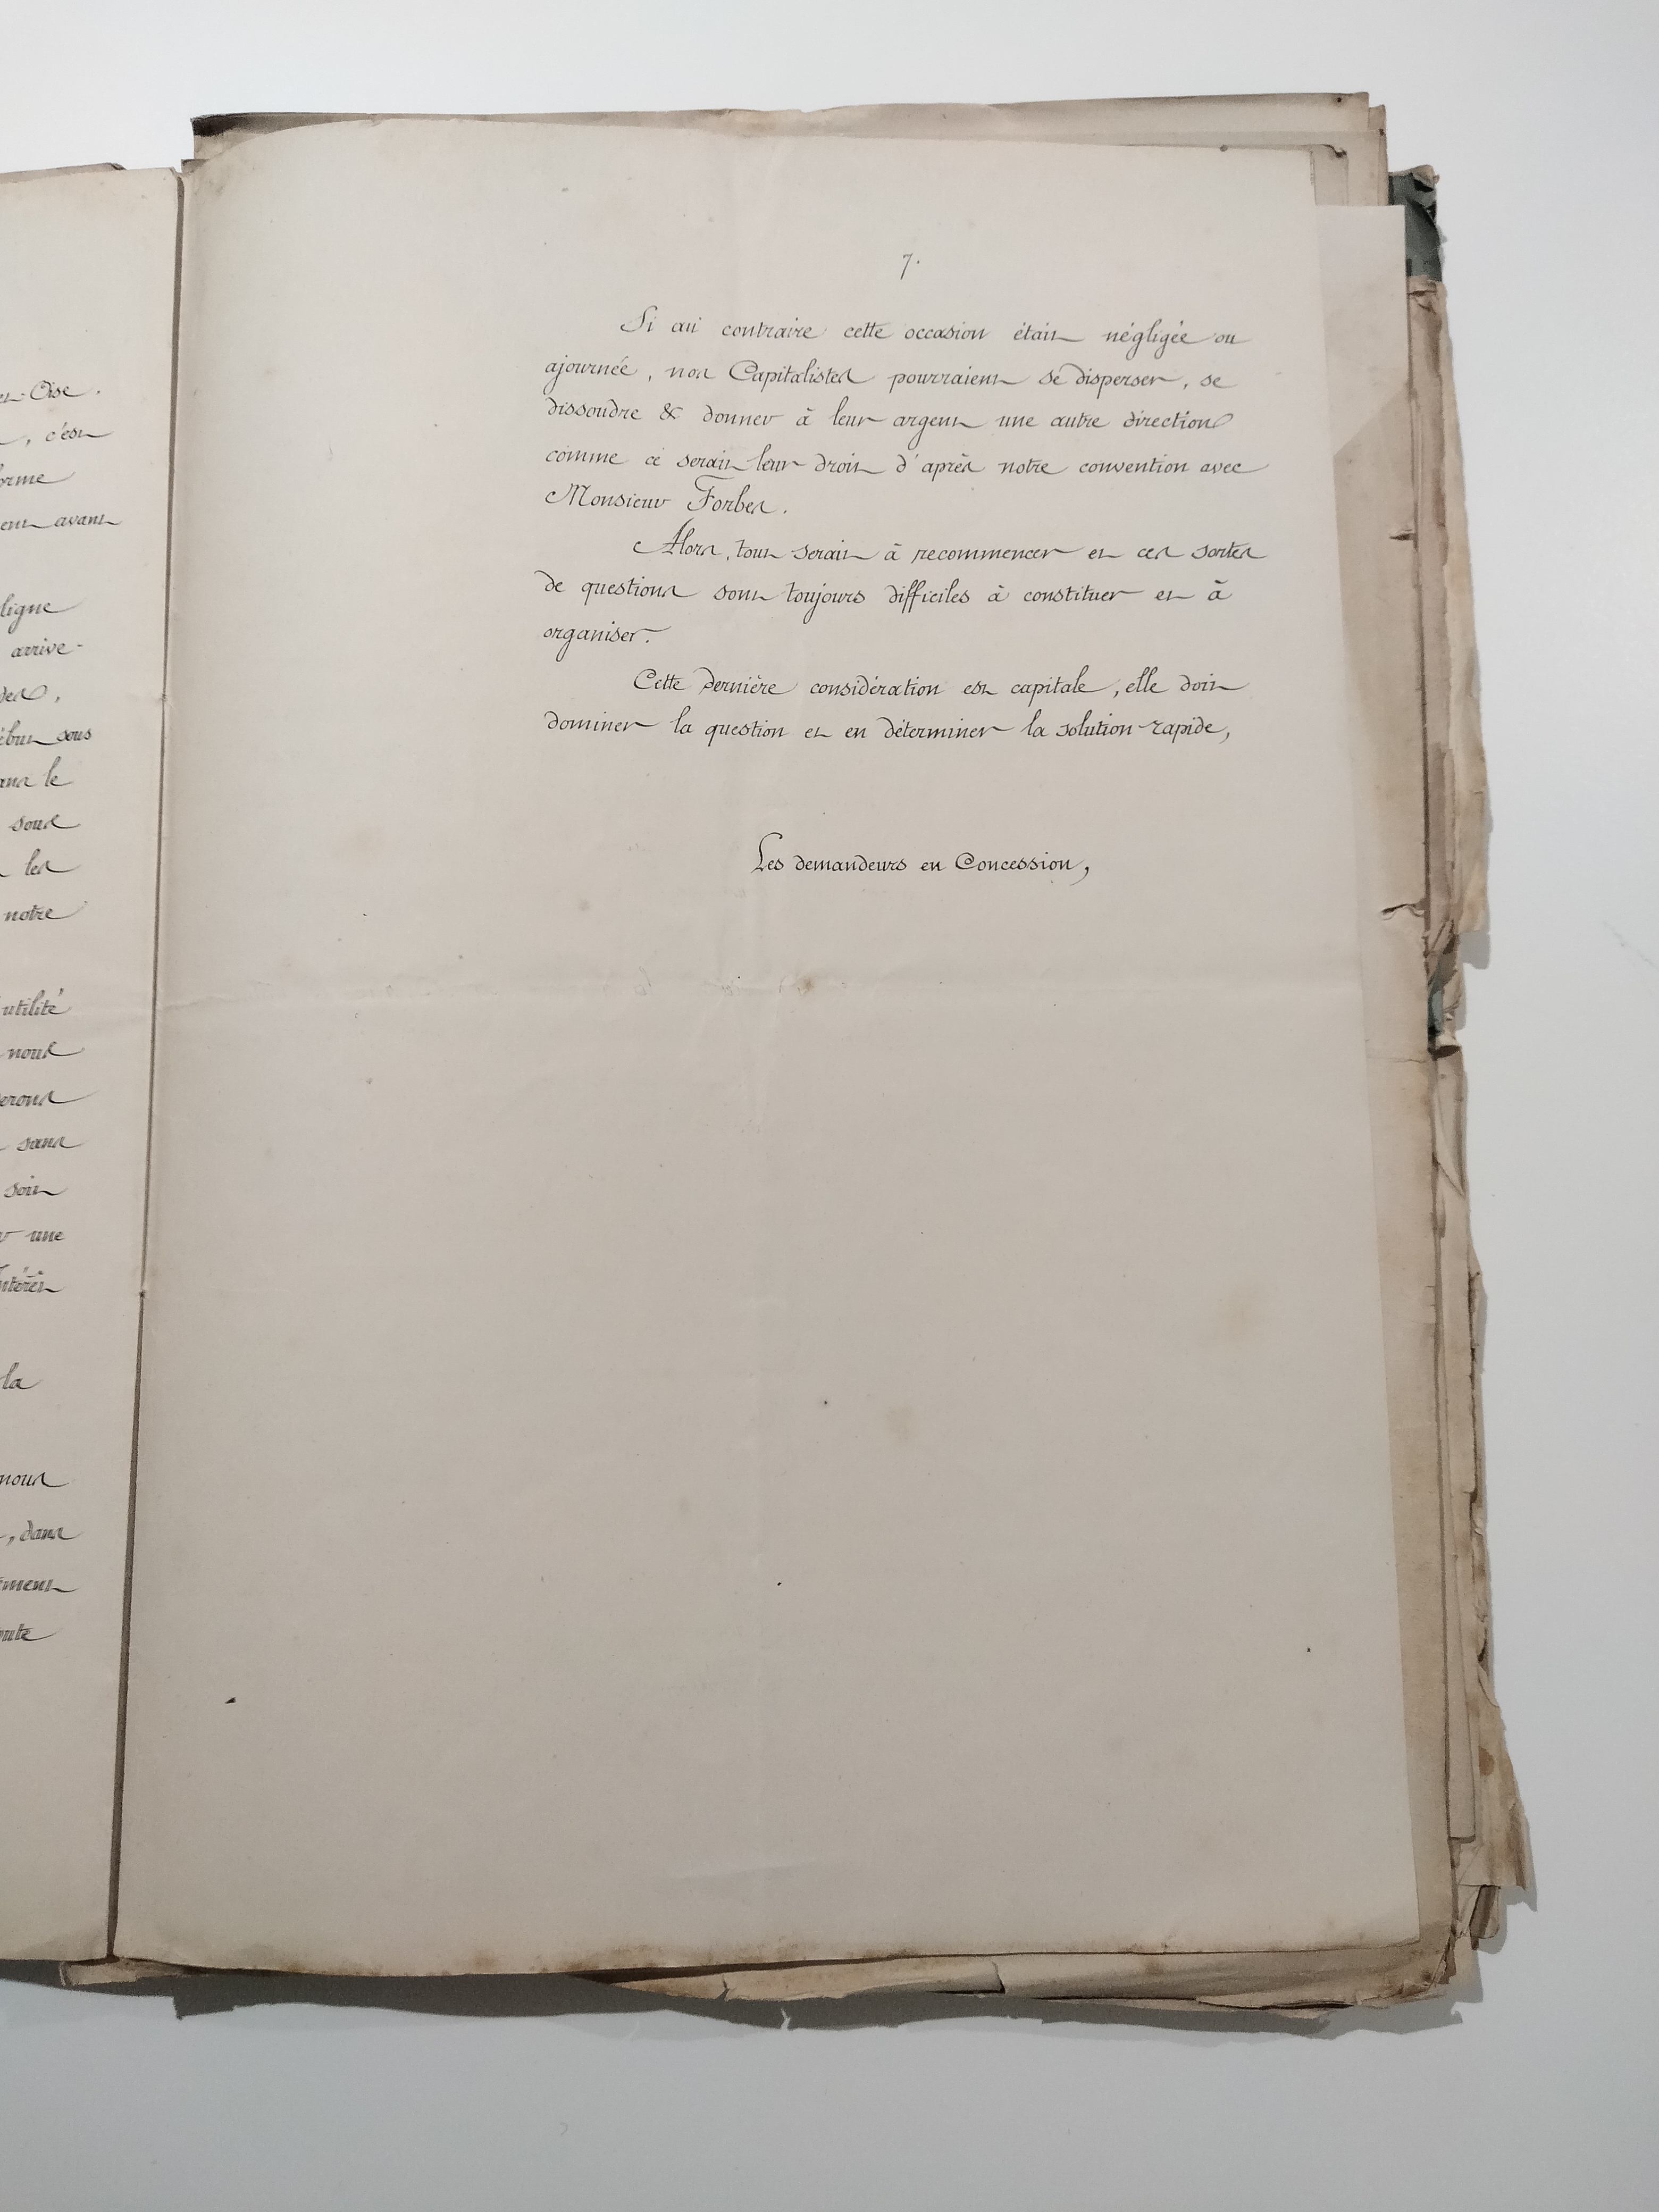 et-Oise.
, c'est
forme
ent avant
ligne
arrive-
sous
le
sous
les
notre
utilité
nous
seront
sans
soit
une
intérêt
la
nous
, dans
7.
Si au contraire cette occasion était négligée ou
ajournée, nos Capitalistes pourraient se disperser, se
dissoudre & donner à leur argent une autre direction
comme ce serait leur droit d'après notre convention avec
Monsieur Forbes.
Alors, tout serait à recommencer et ces sortes
de questions sont toujours difficiles à constituer et à
organiser.
Cette dernière considération est capitale, elle doit
dominer la question et en déterminer la solution rapide,
Les demandeurs en Concession,